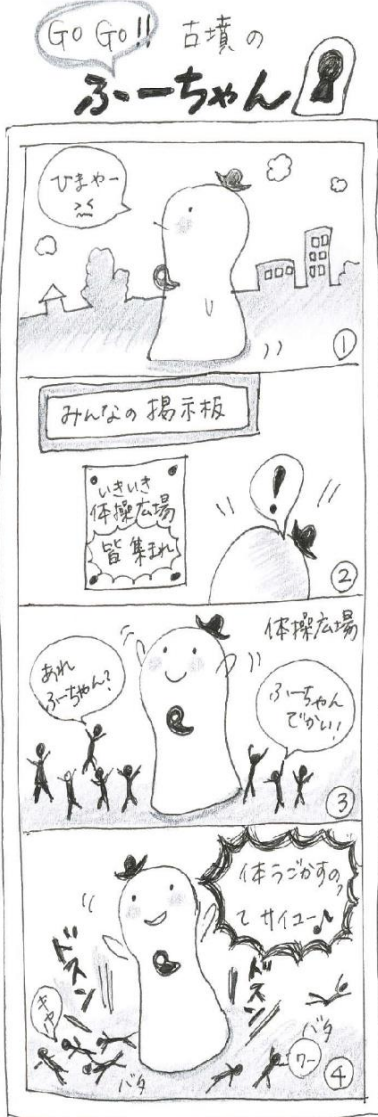 GO GO!! 古墳の
ふーちゃん
ひまやー
①
みんなの掲示板
いきいき
体操広場
皆集まれ
!
②
体操広場
あれ
ふーちゃん?
ふーちゃん
でかい!
③
体うごかすの
て サイコー♪
ドスン
ドスン
キャー
バタ
バタ
ワー
④